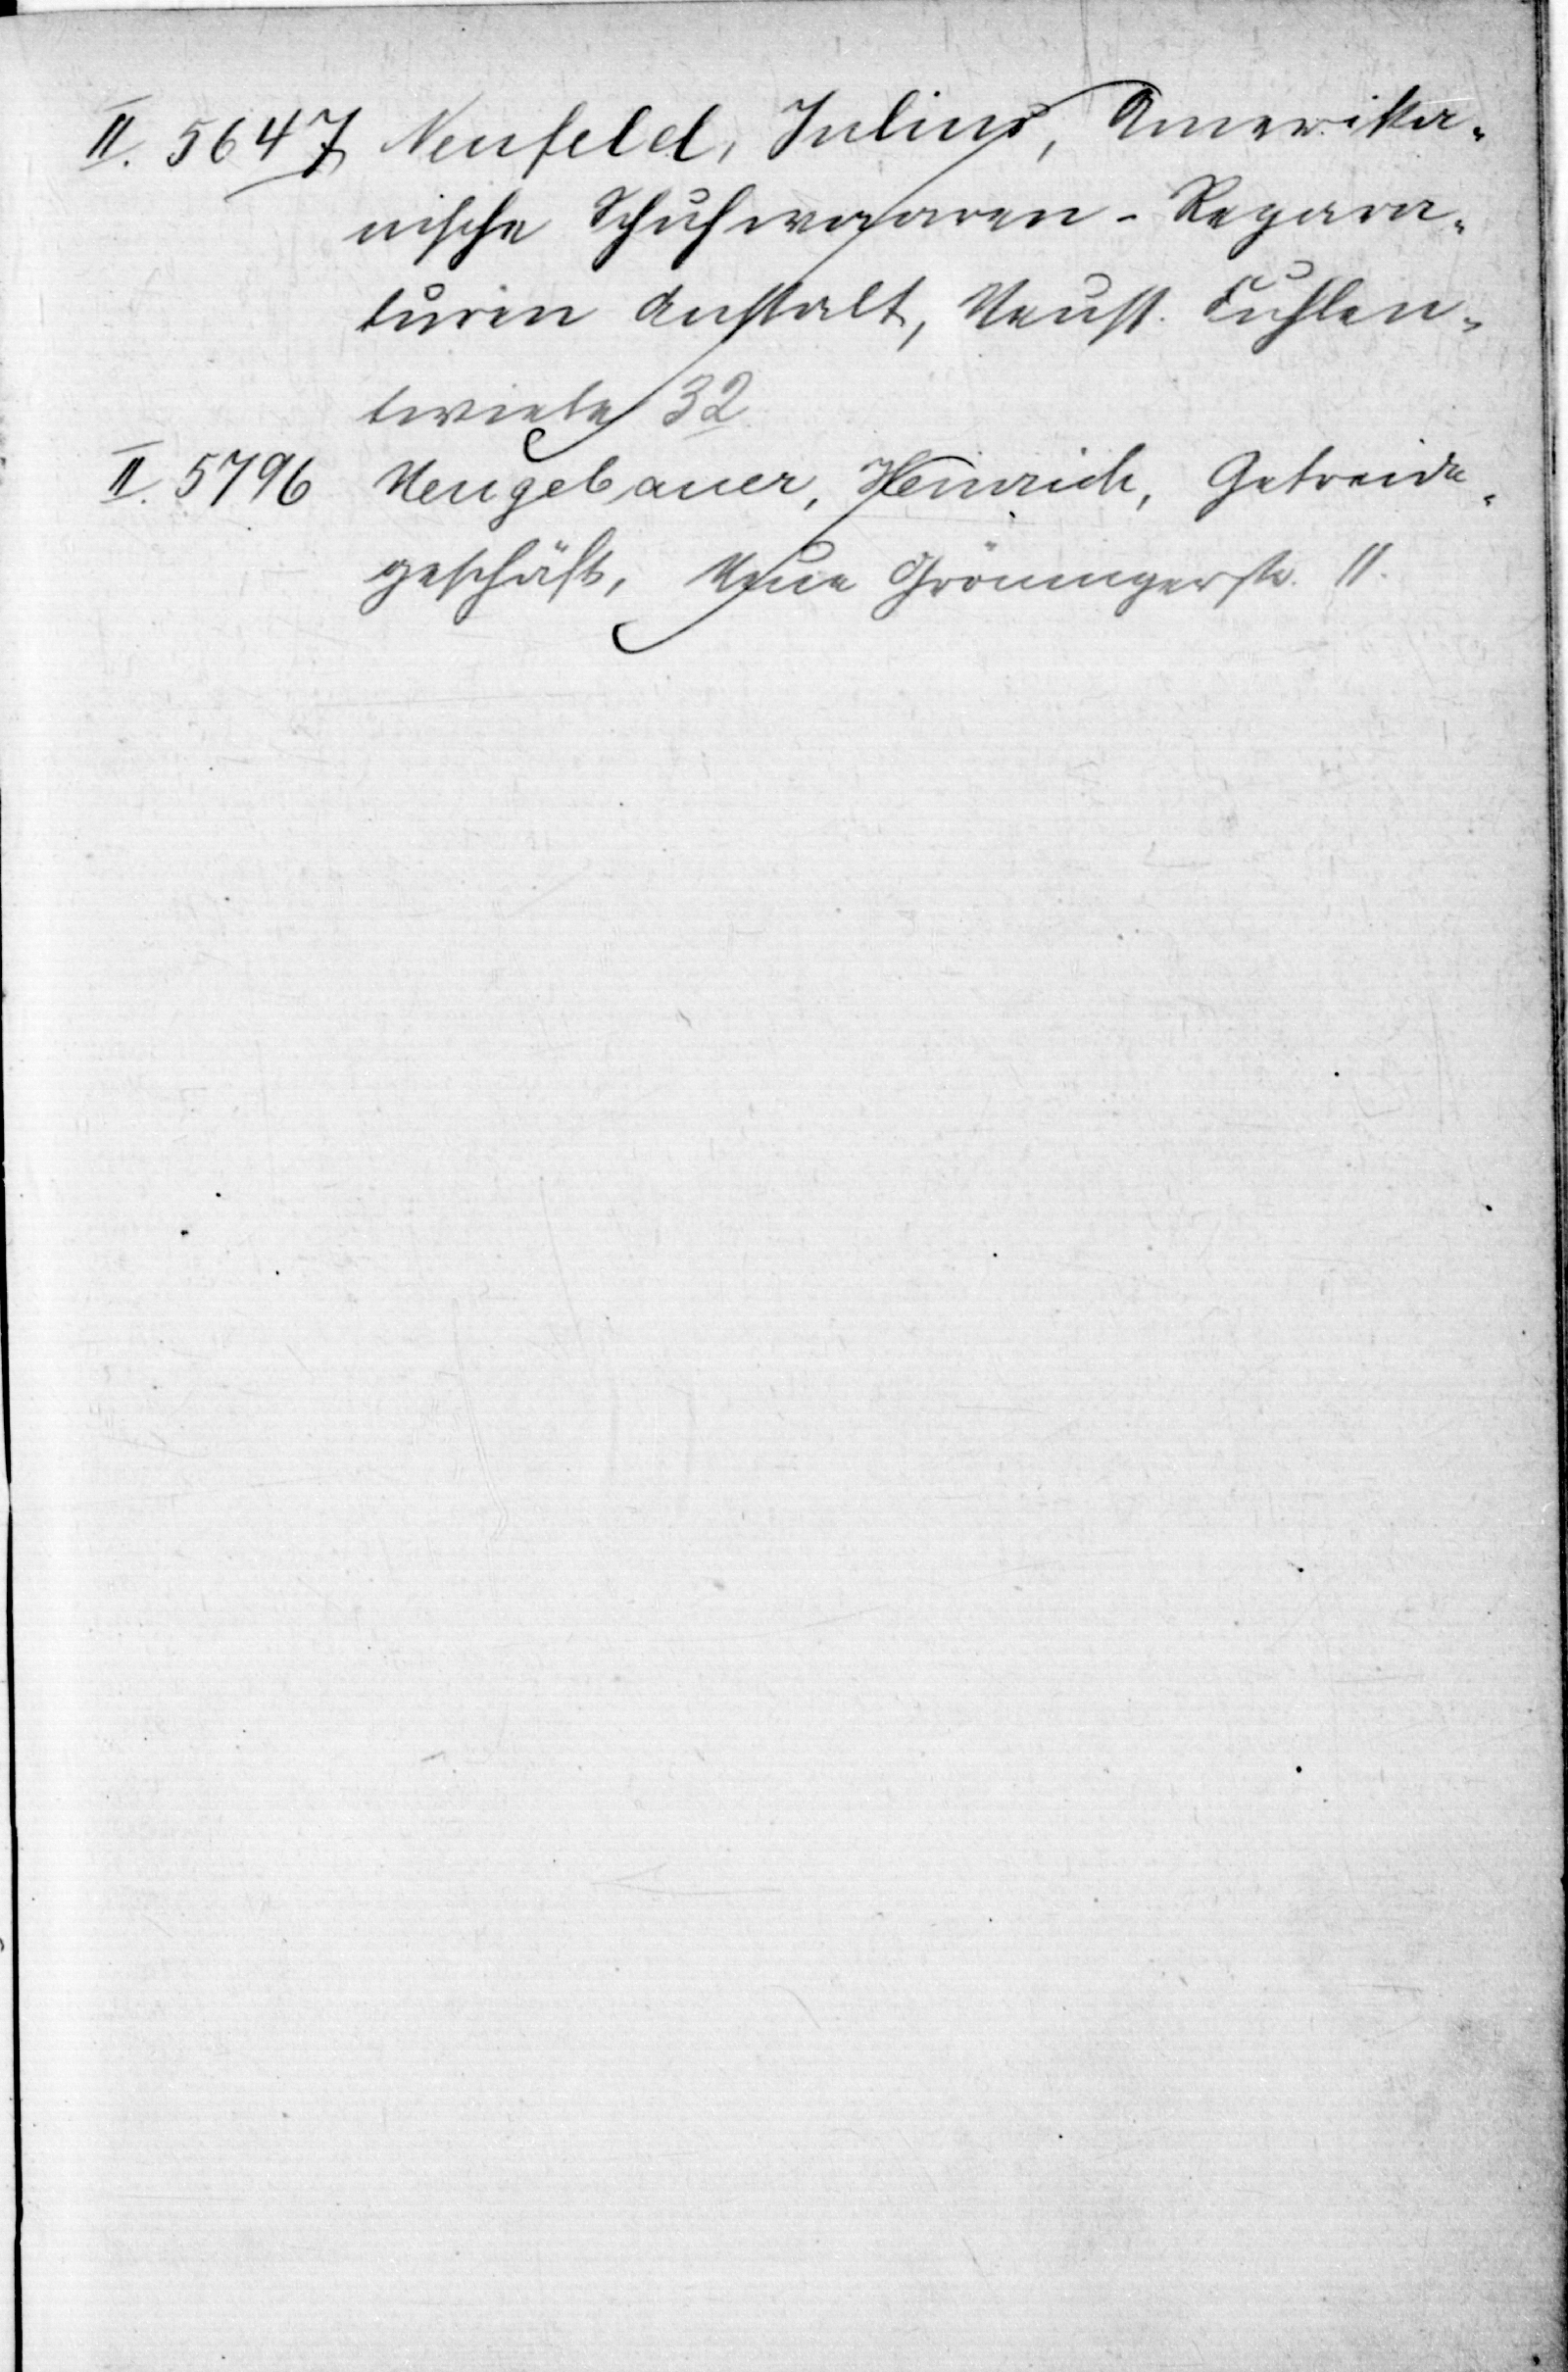 II. 5647 Neufeld, Julius, Amerika-
nische Schuhwaaren-Repara-
turen Anstalt, Neust. Fuhlen-
twiete 32
II. 5796 Neugebauer, Heinrich, Getreide-
geschäft, Neue Gröningerstr. 11.